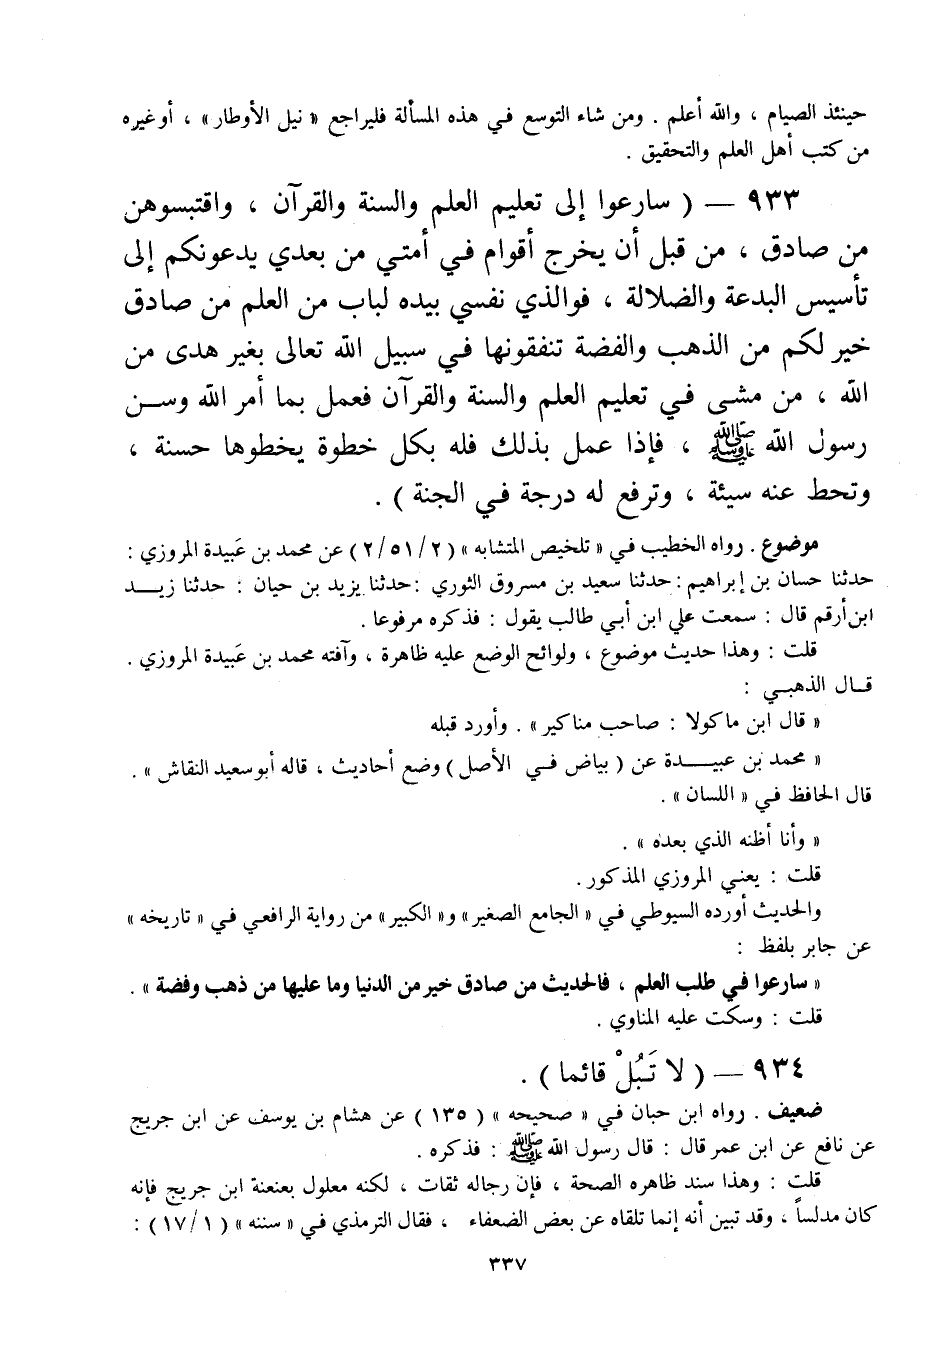 حينئذ الصيام ، والله أعلم . ومن شاء التوسع في هذه المسألة فليراجع « نيل الأوطار » ، أو غيره
من كتب أهل العلم والتحقيق .
٩٣٣ — ( سارعوا إلى تعليم العلم والسنة والقرآن ، واقتبسوهن
من صادق ، من قبل أن يخرج أقوام في أمتي من بعدي يدعونكم إلى
تأسيس البدعة والضلالة ، فوالذي نفسي بيده لباب من العلم من صادق
خير لكم من الذهب والفضة تنفقونها في سبيل الله تعالى بغير هدى من
الله ، من مشى في تعليم العلم والسنة والقرآن فعمل بما أمر الله وسن
رسول الله ﷺ ، فإذا عمل بذلك فله بكل خطوة يخطوها حسنة ،
وتحط عنه سيئة ، وترفع له درجة في الجنة ) .
موضوع . رواه الخطيب في « تلخيص المتشابه » ( ٢/٥١/٢ ) عن محمد بن عَبيدة المروزي :
حدثنا حسان بن إبراهيم : حدثنا سعيد بن مسروق الثوري : حدثنا يزيد بن حيان : حدثنا زيد
ابن أرقم قال : سمعت علي ابن أبي طالب يقول : فذكره مرفوعا .
قلت : وهذا حديث موضوع ، ولوائح الوضع عليه ظاهرة ، وآفته محمد بن عَبيدة المروزي .
قال الذهبي :
« قال ابن ماكولا : صاحب مناكير » . وأورد قبله
« محمد بن عبيدة عن ( بياض في الأصل ) وضع أحاديث ، قاله أبو سعيد النقاش » .
قال الحافظ في « اللسان » .
« وأنا أظنه الذي بعده » .
قلت : يعني المروزي المذكور .
والحديث أورده السيوطي في « الجامع الصغير » و« الكبير » من رواية الرافعي في « تاريخه »
عن جابر بلفظ :
« سارعوا في طلب العلم ، فالحديث من صادق خير من الدنيا وما عليها من ذهب وفضة » .
قلت : وسكت عليه المناوي .
٩٣٤ — ( لا تَبُلْ قائما ) .
ضعيف . رواه ابن حبان في « صحيحه » ( ١٣٥ ) عن هشام بن يوسف عن ابن جريج
عن نافع عن ابن عمر قال : قال رسول الله ﷺ : فذكره .
قلت : وهذا سند ظاهره الصحة ، فإن رجاله ثقات ، لكنه معلول بعنعنة ابن جريج فإنه
كان مدلساً ، وقد تبين أنه إنما تلقاه عن بعض الضعفاء ، فقال الترمذي في « سننه » ( ١٧/١ ) :
٣٣٧